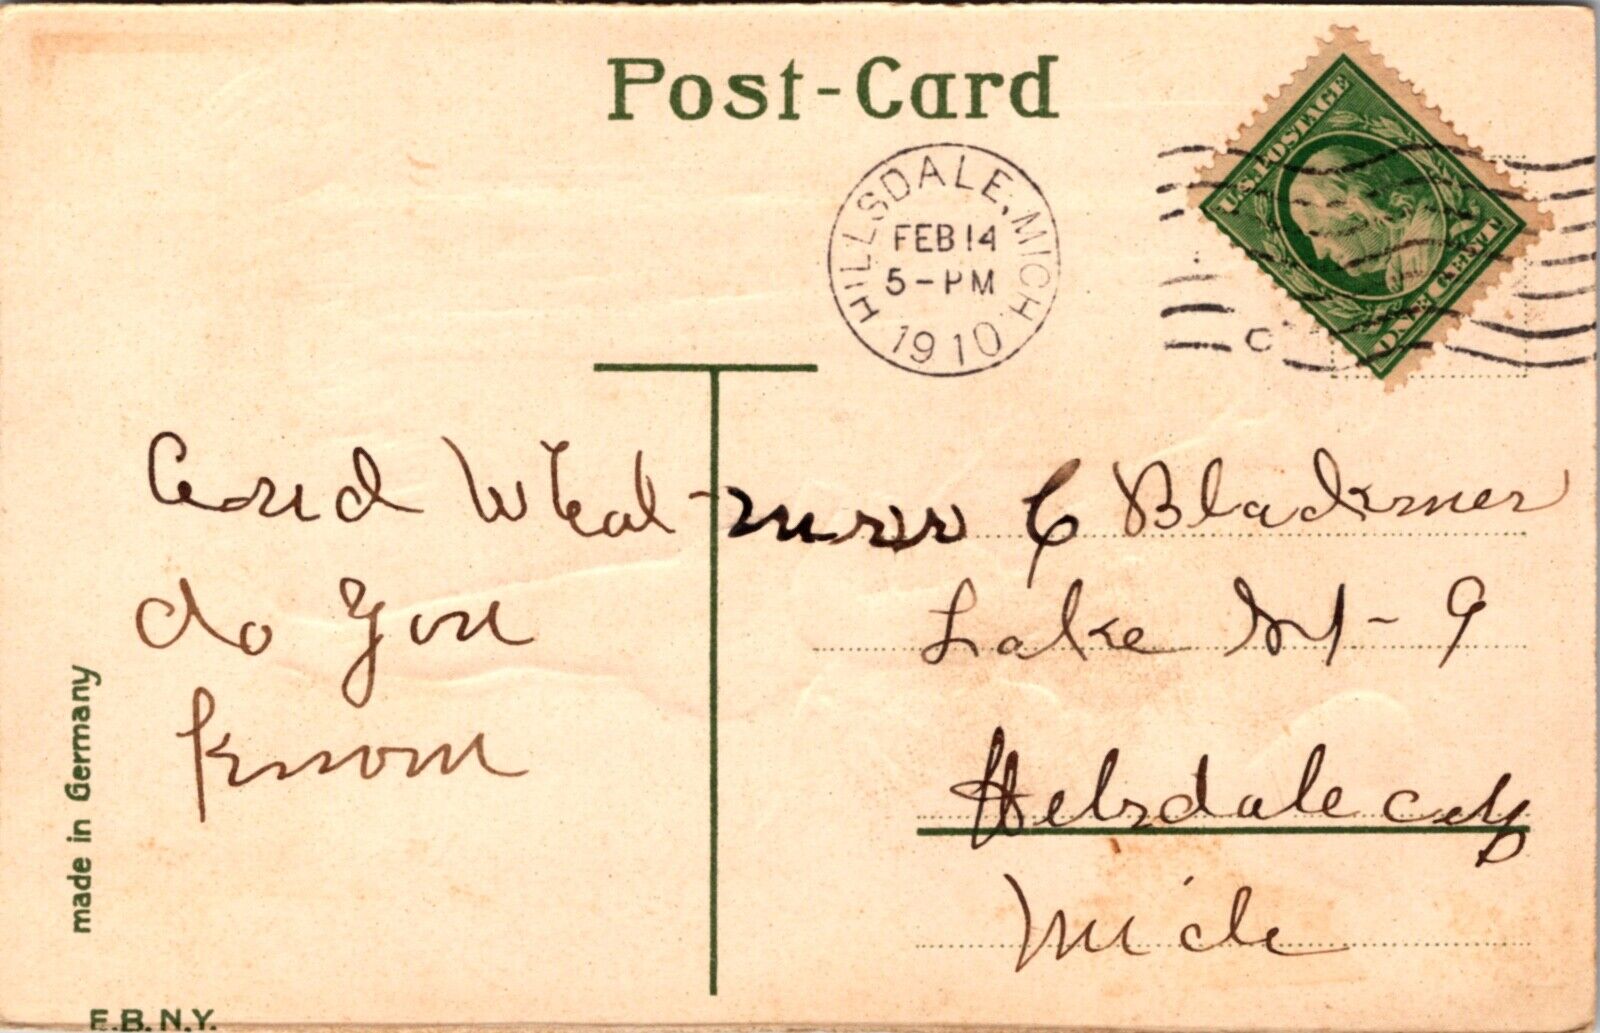 Post-Card
U.S. POSTAGE
ONE CENT
HILLSDALE, MICH.
FEB 14
5-PM
1910
And What
do you
know
C Blackmer
Lake
Helsdale city
Mich
made in Germany
E.B.N.Y.